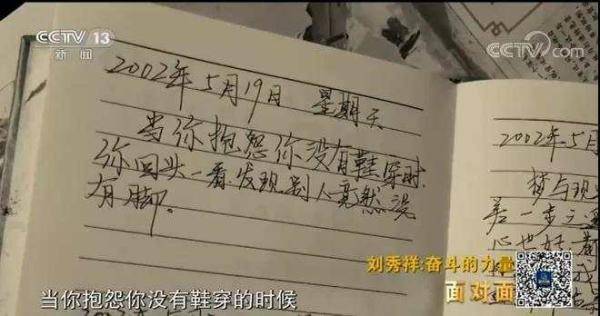 CCTV 13
新闻
CCTV.com
2002年5月19日 星期天
当你抱怨你没有鞋穿时,
你回头一看发现别人竟然没
有脚。
2002年5月
梦与现
差一步之
心也好
刘秀祥:奋斗的力量
面对面
当你抱怨你没有鞋穿的时候